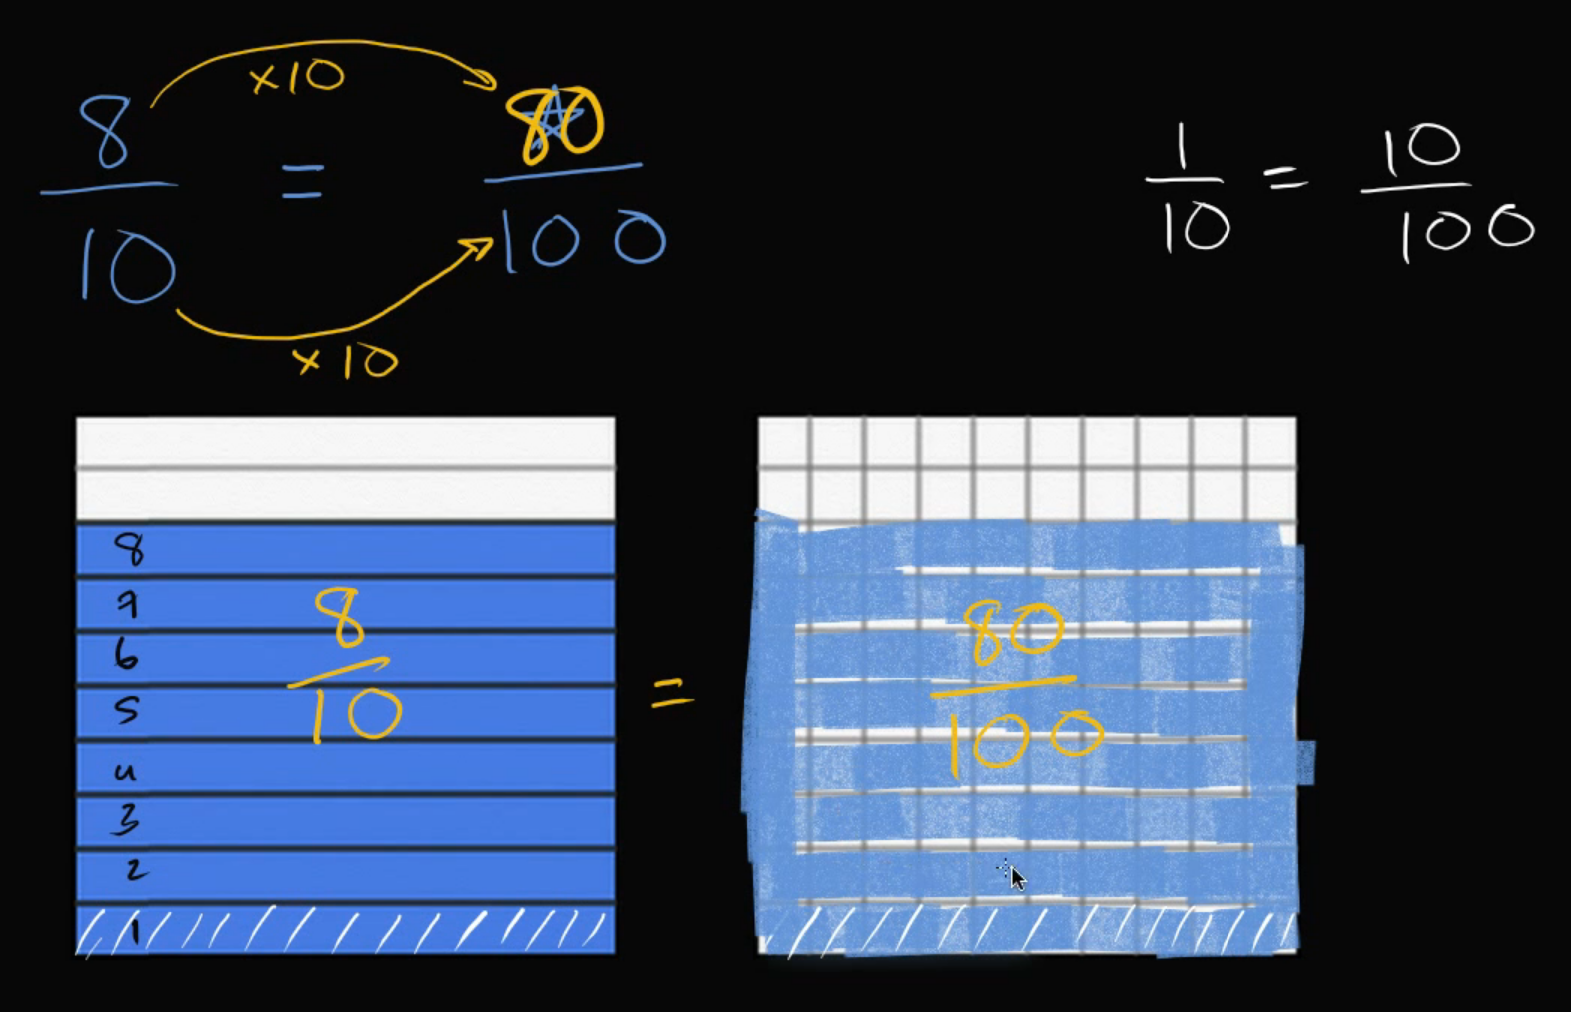 ×10
8/10 = 80/100
×10
1/10 = 10/100
8
7
6
5
4
3
2
1
8/10 = 80/100